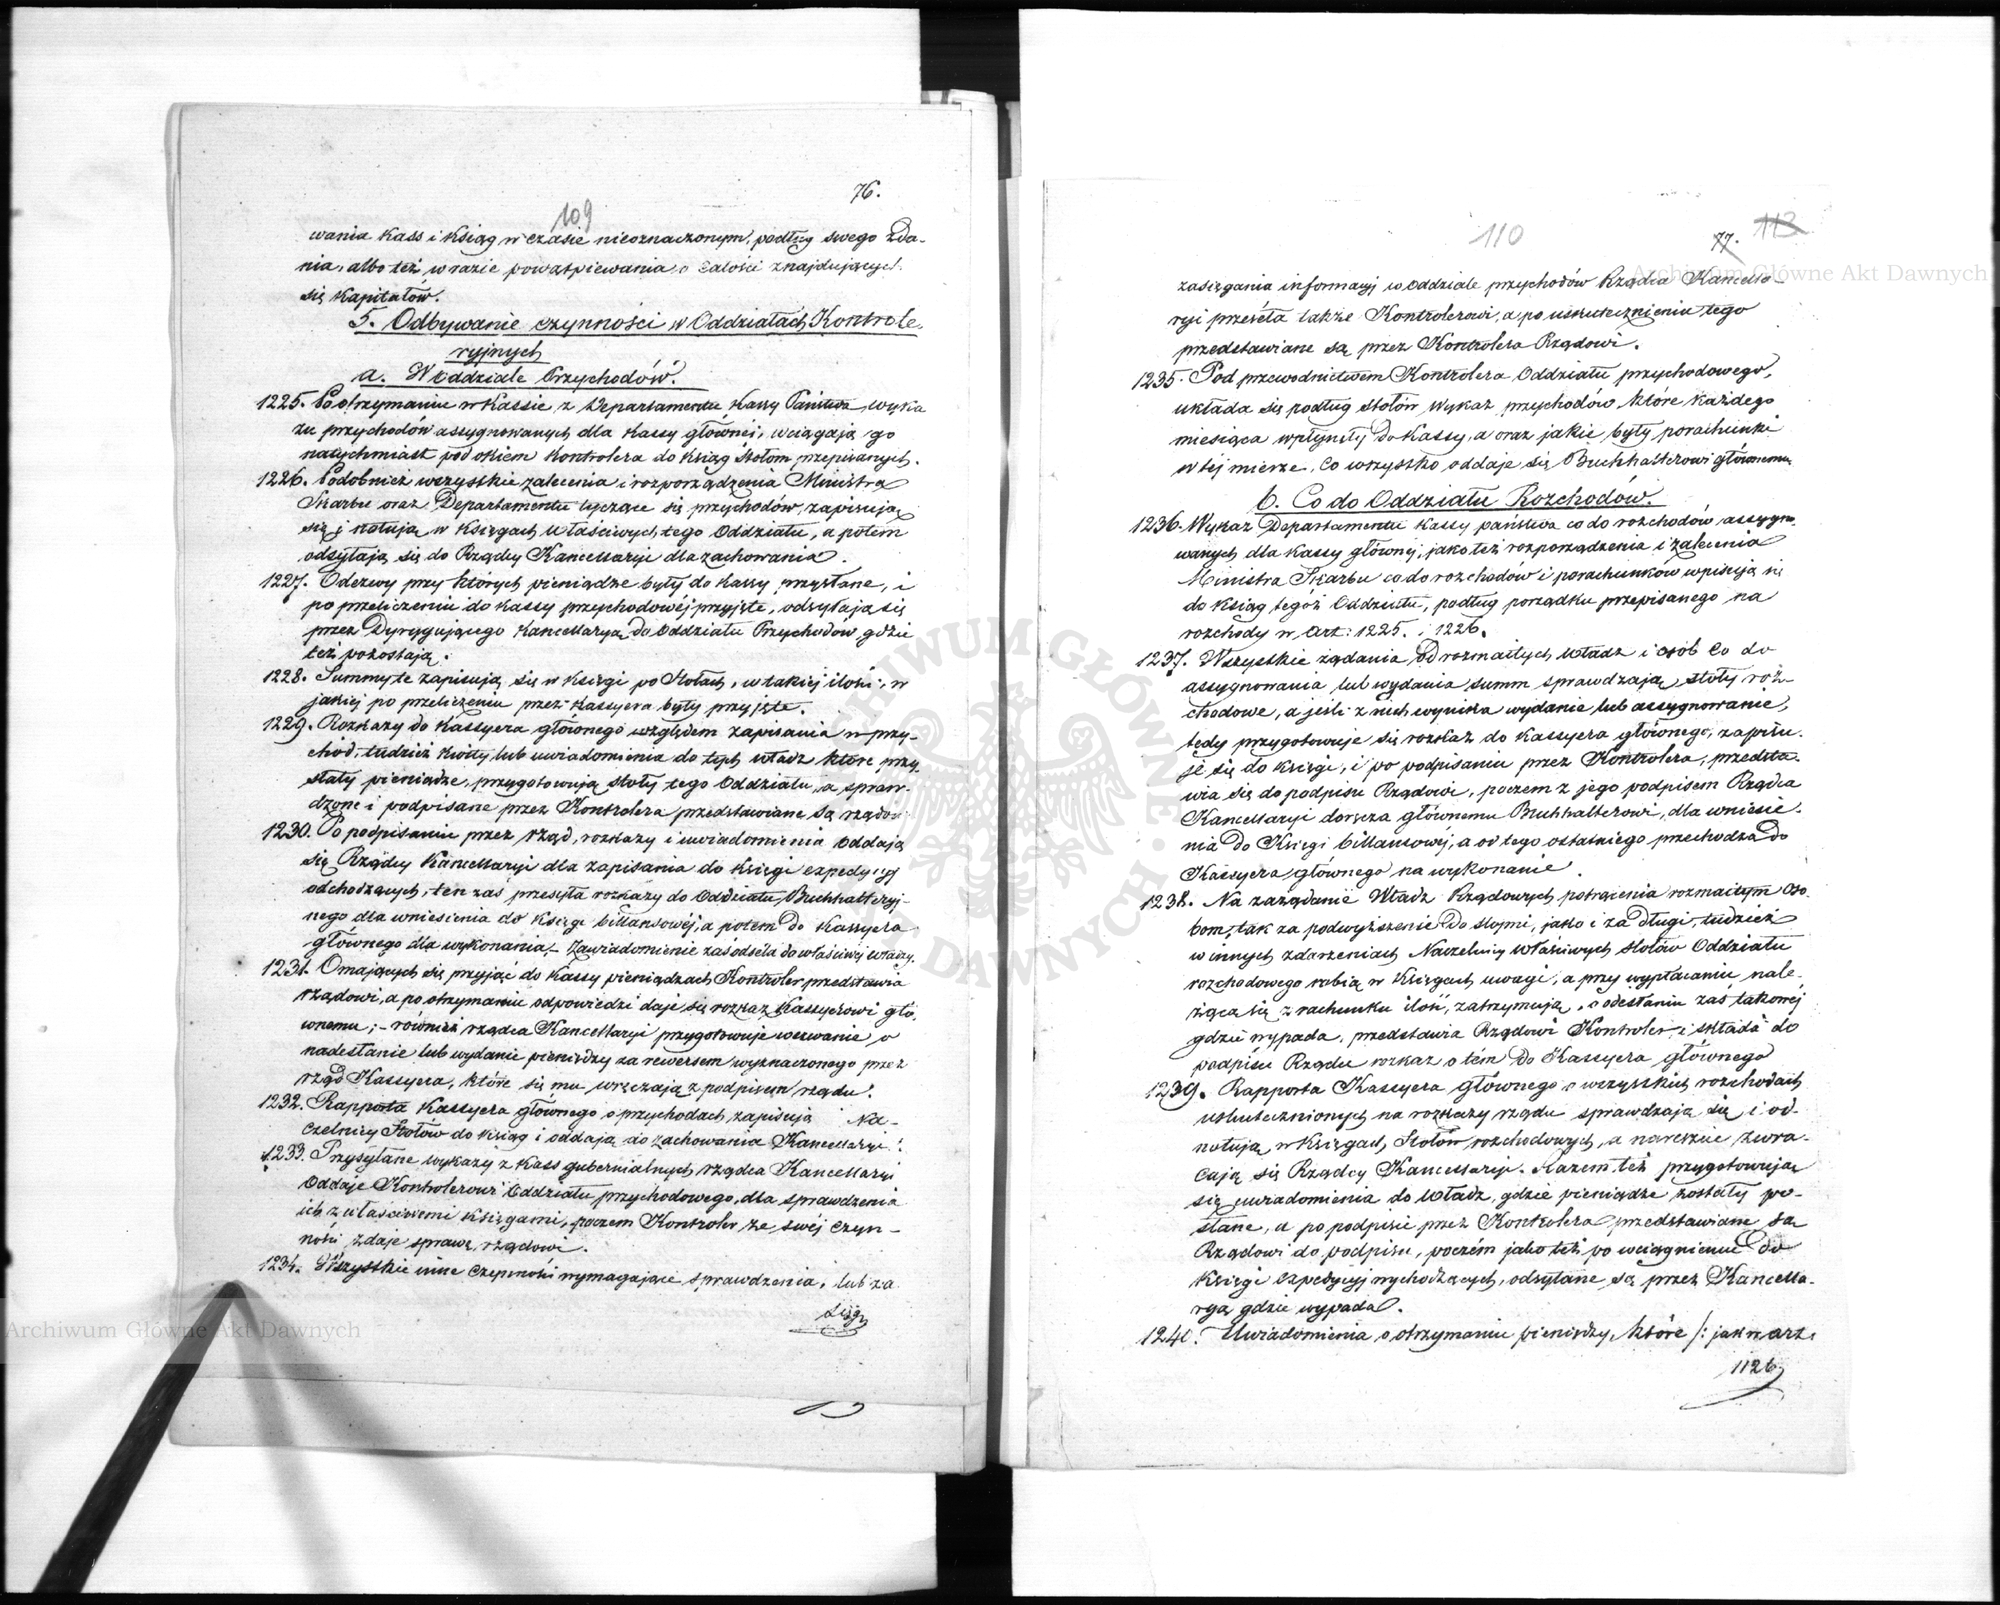 76.
109
wania Kass i Ksiąg w czasie nieoznaczonym, podług swego zda-
nia, albo też w razie powątpiewania o całości znajdujących
się Kapitałów.
5. Odbywanie czynności w Oddziałach Kontrole-
ryjnych
a. W oddziale Przychodów.
1225. Po otrzymaniu w Kassie z Departamentu Kassy Państwa wyka
zu przychodów assygnowanych dla Kassy głównej, wciągają go
natychmiast pod okiem Kontrolera do ksiąg stołom przepisanych.
1226. Podobnież wszystkie zalecenia i rozporządzenia Ministra
Skarbu oraz Departamentu tyczące się przychodów, zapisują
się i notują w Księgach właściwych tego Oddziału, a potem
odsyłają się do Rządcy Kancellaryi dla zachowania.
1227. Odezwy przy których pieniądze były do Kassy przysłane, i
po przeliczeniu do kassy przychodowéj przyjęte, odsyłają się
przez Dyrygującego Kancellaryą do Oddziału Przychodów, gdzie
też pozostają.
1228. Summy te zapisują się w księgi po Stołach, w takiej ilości, w
jakiej po przeliczeniu przez Kassyera były przyjęte.
1229. Rozkazy do Kassyera głównego względem zapisania w przy-
chod, tudzież kwity lub uwiadomienia do tych władz które przy
słały pieniądze, przygotowują stoły tego Oddziału, a spraw-
dzone i podpisane przez Kontrolera przedstawiane są rządowi
1230. Po podpisaniu przez rząd, rozkazy i uwiadomienia oddają
się Rządcy Kancellaryi dla zapisania do Księgi expedycyj
odchodzących, ten zaś przesyła rozkazy do Oddziału Buchhalteryj-
nego dla wniesienia do Księgi billansowéj, a potem do Kassyera
głównego dla wykonania, – Zawiadomienie zaś odséła do właściwej władzy.
1231. O mających się przyjąć do Kassy pieniądzach Kontroler przedstawia
rządowi, a po otrzymaniu odpowiedzi daje się rozkaz Kassyerowi głó-
wnemu; – również rządca Kancellaryi przygotowuje wezwanie o
nadesłanie lub wydanie pieniędzy za rewersem wyznaczonego przez
rząd Kassyera, które się mu wręczają z podpisem rządu.
1232. Rapporta Kassyera głównego o przychodach, zapisują Na-
czelnicy Stołów do ksiąg i oddają do zachowania Kancellaryi.
1233. Przysyłane wykazy z Kass gubernialnych, rządca Kancellaryi
oddaje Kontrolerowi Oddziału przychodowego, dla sprawdzenia
ich z właściwemi księgami, poczem Kontroler ze swéj czyn-
ności zdaje sprawę rządowi.
1234. Wszystkie inne czynności wymagające sprawdzenia, lub za
sięg
110
77. 113
zasięgania informacyj w Oddziale przychodów Rządca Kancella-
ryi przeséła także Kontrolerowi, a po uskutecznieniu tego
przedstawiane są przez Kontrolera Rządowi.
1235. Pod przewodnictwem Kontrolera Oddziału przychodowego,
układa się podług stołów wykaz przychodów które każdego
miesiąca wpłynęły do Kassy, a oraz jakie były porachunki
w tej mierze, co wszystko oddaje się Buchhalterowi głównemu
b. Co do Oddziału Rozchodów.
1236. Wykaz Departamentu Kassy państwa co do rozchodów assygno-
wanych dla Kassy głównej, jako też rozporządzenia i zalecenia
Ministra Skarbu co do rozchodów i porachunków wpisują się
do ksiąg tegóż Oddziału, podług porządku przepisanego na
rozchody w art: 1225. i 1226.
1237. Wszystkie żądania od rozmaitych władz i osób co do
assygnowania lub wydania summ sprawdzają stoły roz-
chodowe, a jeśli z nich wynika wydanie lub assygnowanie,
tedy przygotowuje się rozkaz do Kassyera głównego, zapisu-
je się do księgi, i po podpisaniu przez Kontrolera, przedsta-
wia się do podpisu Rządowi, poczem z jego podpisem Rządca
Kancellaryi doręcza głównemu Buchhalterowi, dla wniesie-
nia do Księgi billansowéj, a od tego ostatniego przechodzą do
Kassyera głównego na wykonanie.
1238. Na zażądanie Władz Rządowych potrącenia rozmaitym oso-
bom, tak za podwyższenie do stopni, jako i za długi, tudzież
w innych zdarzeniach Naczelnicy właściwych stołów Oddziału
rozchodowego robią w Księgach uwagi, a przy wypłacaniu nale-
żącą się z rachunku ilość, zatrzymują, o odesłaniu zaś takowéj
gdzie wypada, przedstawia Rządowi Kontroler i składa do
podpisu Rządu rozkaz o tém do Kassyera głównego
1239. Rapporta Kassyera głównego o wszystkich rozchodach
uskutecznionych na rozkazy rządu sprawdzają się i od-
notują w Księgach Stołów rozchodowych, a nareszcie zwra-
cają się Rządcy Kancellaryi. Razem też przygotowują
się uwiadomienia do władz, gdzie pieniądze zostały po-
słane, a po podpisie przez Kontrolera przedstawiane są
Rządowi do podpisu, poczém jako też po wciągnieniu do
Księgi expedycyj wychodzących, odsyłane są przez Kancella-
ryą gdzie wypada.
1240. Uwiadomienia o otrzymaniu pieniędzy, które /: jak w art.
1126
Archiwum Główne Akt Dawnych
Archiwum Główne Akt Dawnych
ARCHIWUM GŁÓWNE AKT DAWNYCH